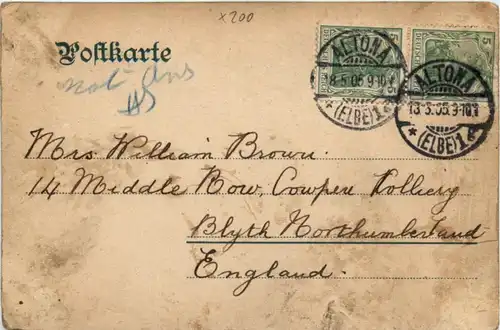 x200
Postkarte
Not Ans
5 5
ALTONA
18.5.05.9-10V
* (ELBE) 1 c
ALTONA
18.5.05.9-10V
* (ELBE) 1 c
Mrs William Brown.
14 Middle Row, Cowpen Colliery
Blyth Northumberland
England.